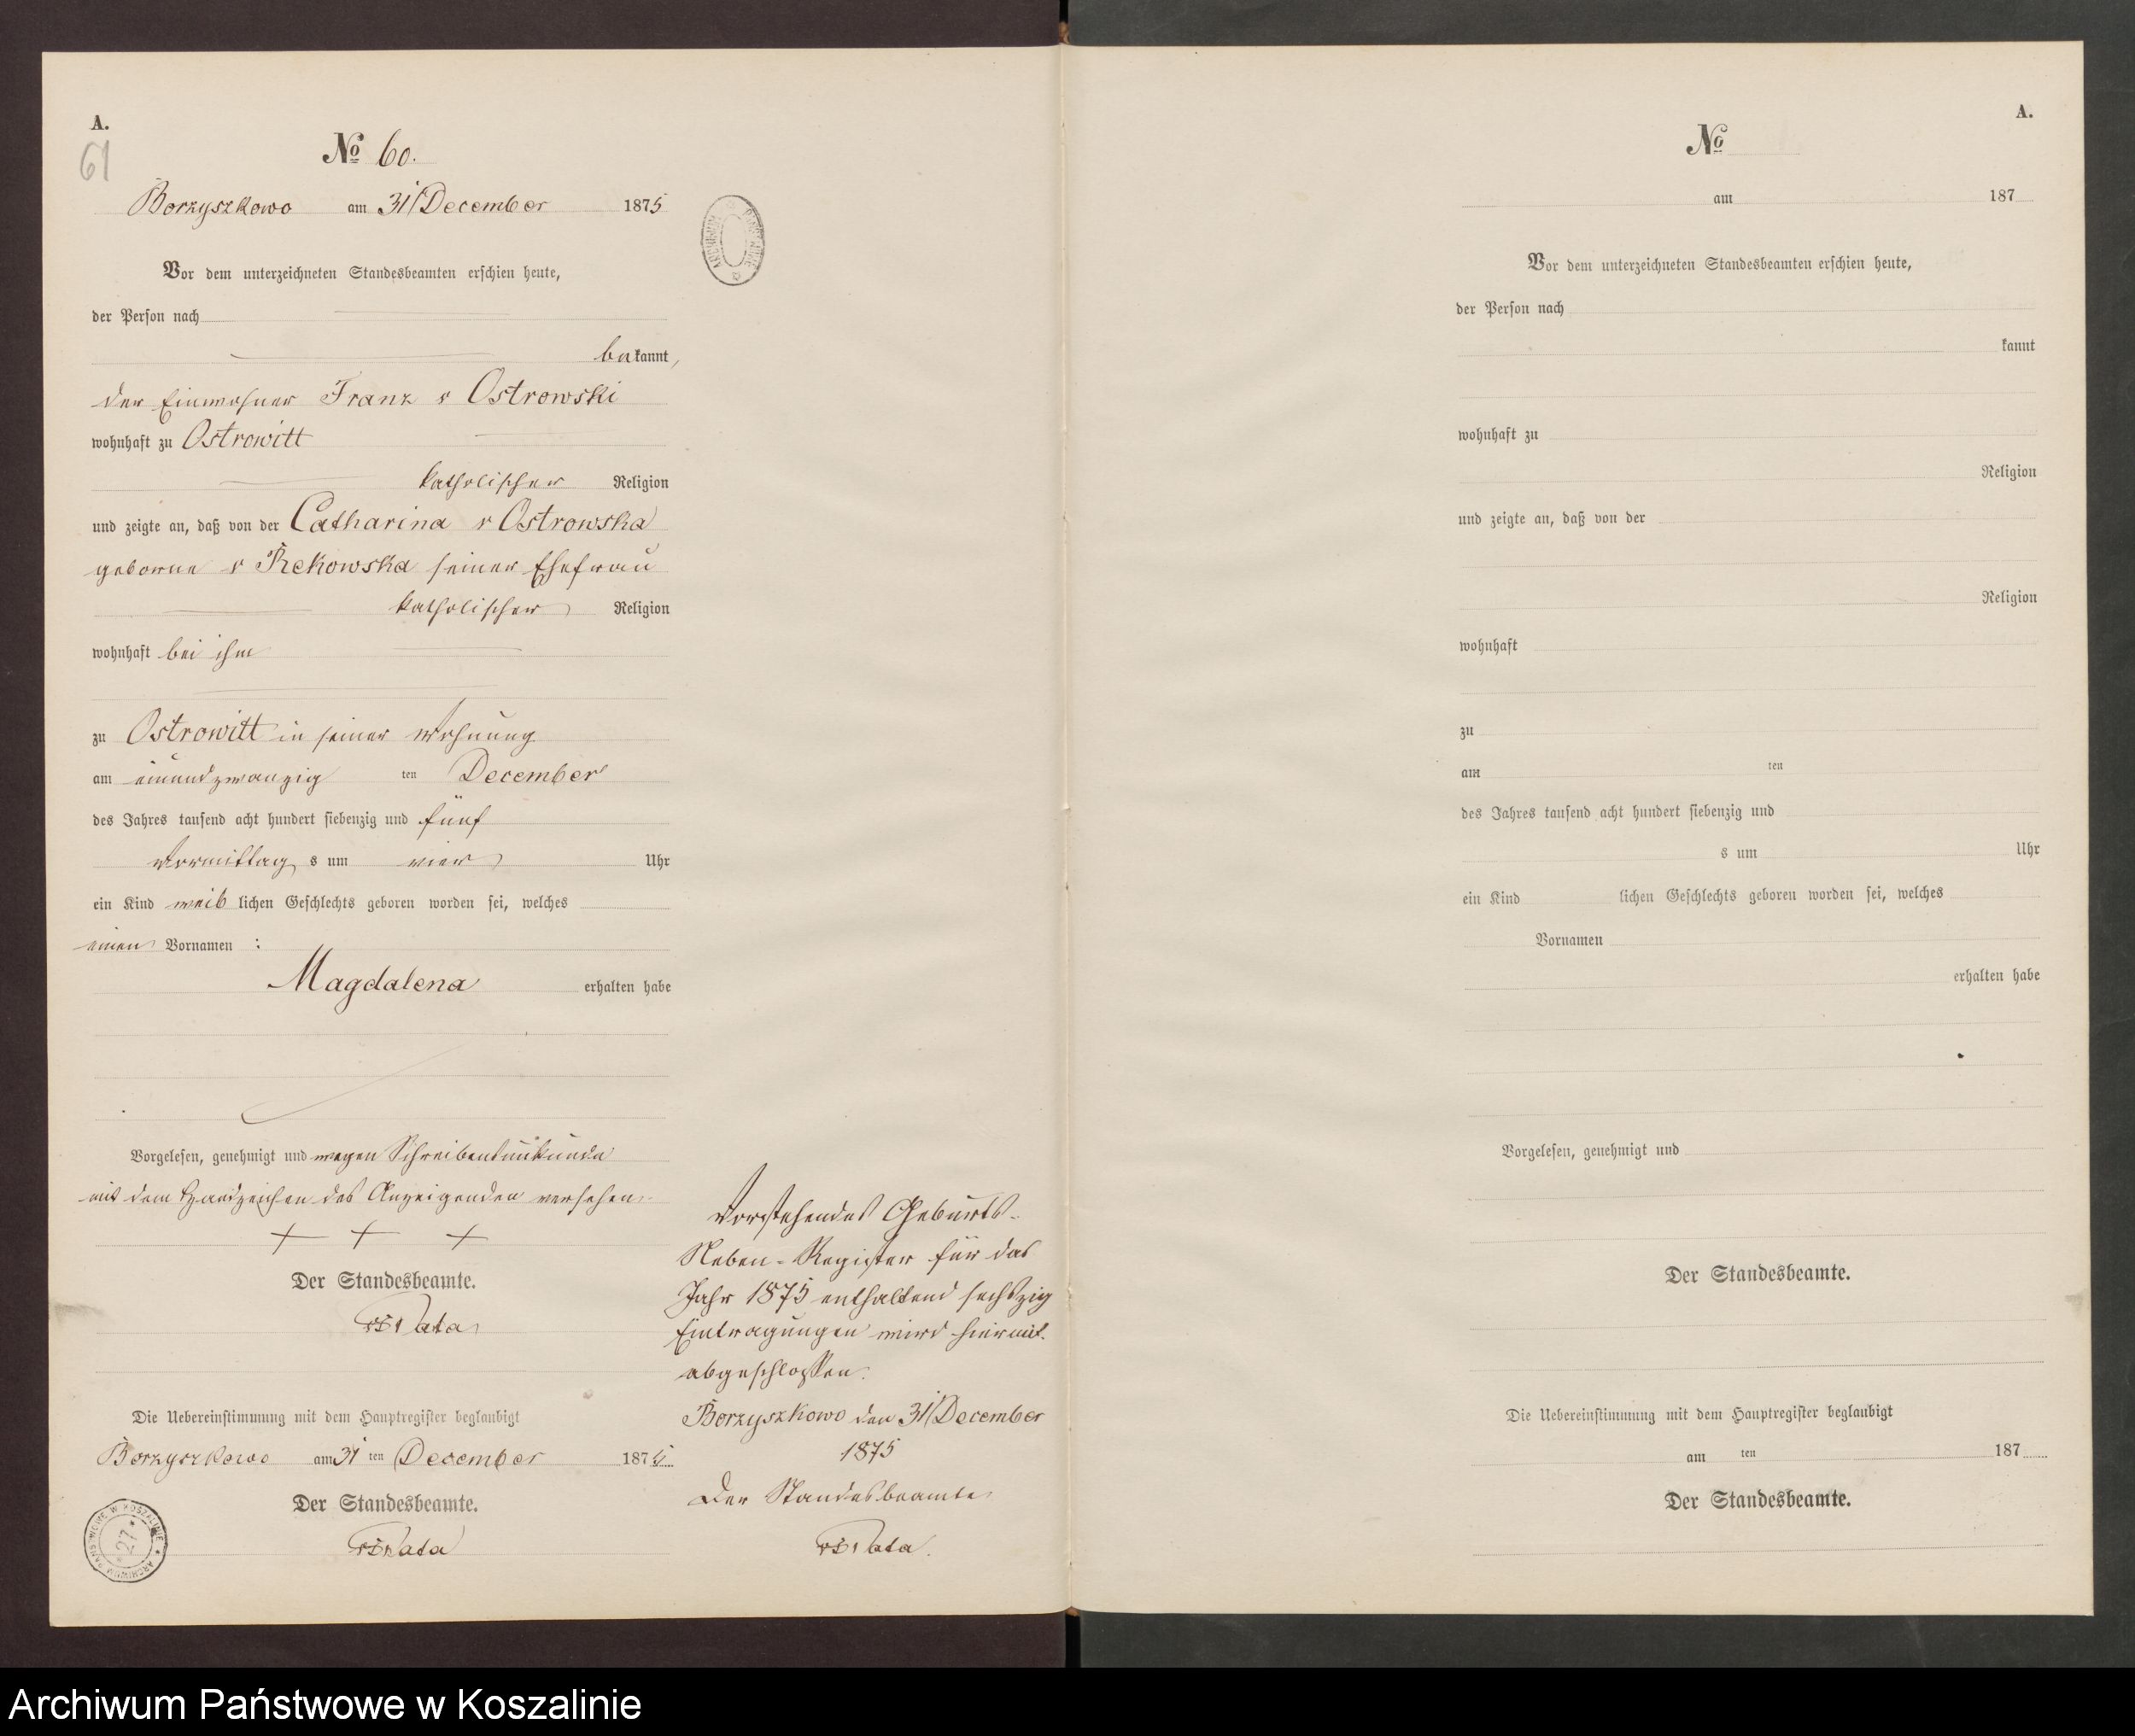 A.
61
No 60.
Borzyszkowo am 31 December 1875
Vor dem unterzeichneten Standesbeamten erschien heute,
der Person nach
bekannt,
der Einwohner Franz v Ostrowski
wohnhaft zu Ostrowitt
katholischer Religion
und zeigte an, daß von der Catharina v Ostrowska
geborne v Rekowska seiner Ehefrau
katholischer Religion
wohnhaft bei ihm
zu Ostrowitt in seiner Wohnung
am einundzwanzig ten December
des Jahres tausend acht hundert siebenzig und fünf
Vormittag s um vier Uhr
ein Kind weib lichen Geschlechts geboren worden sei, welches
einen Vornamen :
Magdalena erhalten habe
Vorgelesen, genehmigt und wegen Schreibensunkunde
mit dem Handzeichen des Anzeigenden versehen.
+ + +
Der Standesbeamte.
Die Uebereinstimmung mit dem Hauptregister beglaubigt
Borzyszkowo am 31 ten December 1875
Der Standesbeamte.
ARCHIWUM PAŃSTWOWE W KOSZALINIE
27
ARCHIWUM PAŃSTWOWE
Vorstehendes Geburts-
Neben-Register für das
Jahr 1875 enthaltend sechszig
Eintragungen wird hiermit
abgeschlossen.
Borzyszkowo den 31 December
1875
Der Standesbeamte
A.
No
am 187
Vor dem unterzeichneten Standesbeamten erschien heute,
der Person nach
kannt
wohnhaft zu
Religion
und zeigte an, daß von der
Religion
wohnhaft
zu
am ten
des Jahres tausend acht hundert siebenzig und
s um Uhr
ein Kind lichen Geschlechts geboren worden sei, welches
Vornamen
erhalten habe
Vorgelesen, genehmigt und
Der Standesbeamte.
Die Uebereinstimmung mit dem Hauptregister beglaubigt
am ten 187
Der Standesbeamte.
Archiwum Państwowe w Koszalinie